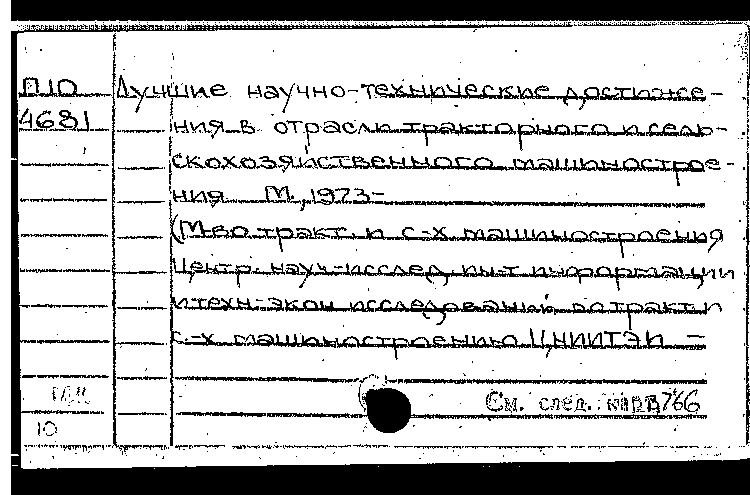 П10 Лучшие научно-технические достиже-
4681 ния в отрасли тракторного и сель-
скохозяйственного машинострое-
ния М., 1973-
(М-во тракт. и с-х машиностроения
Центр. науч.-исслед. ин-т информации
и техн-экон исследований по тракт. и
с.-х машиностроению ЦНИИТЭИ -
См. след. карт. 766
10